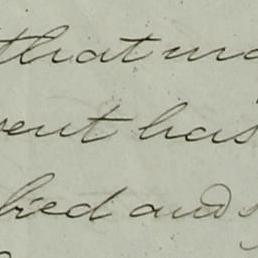 that ma
vent has
fied and s